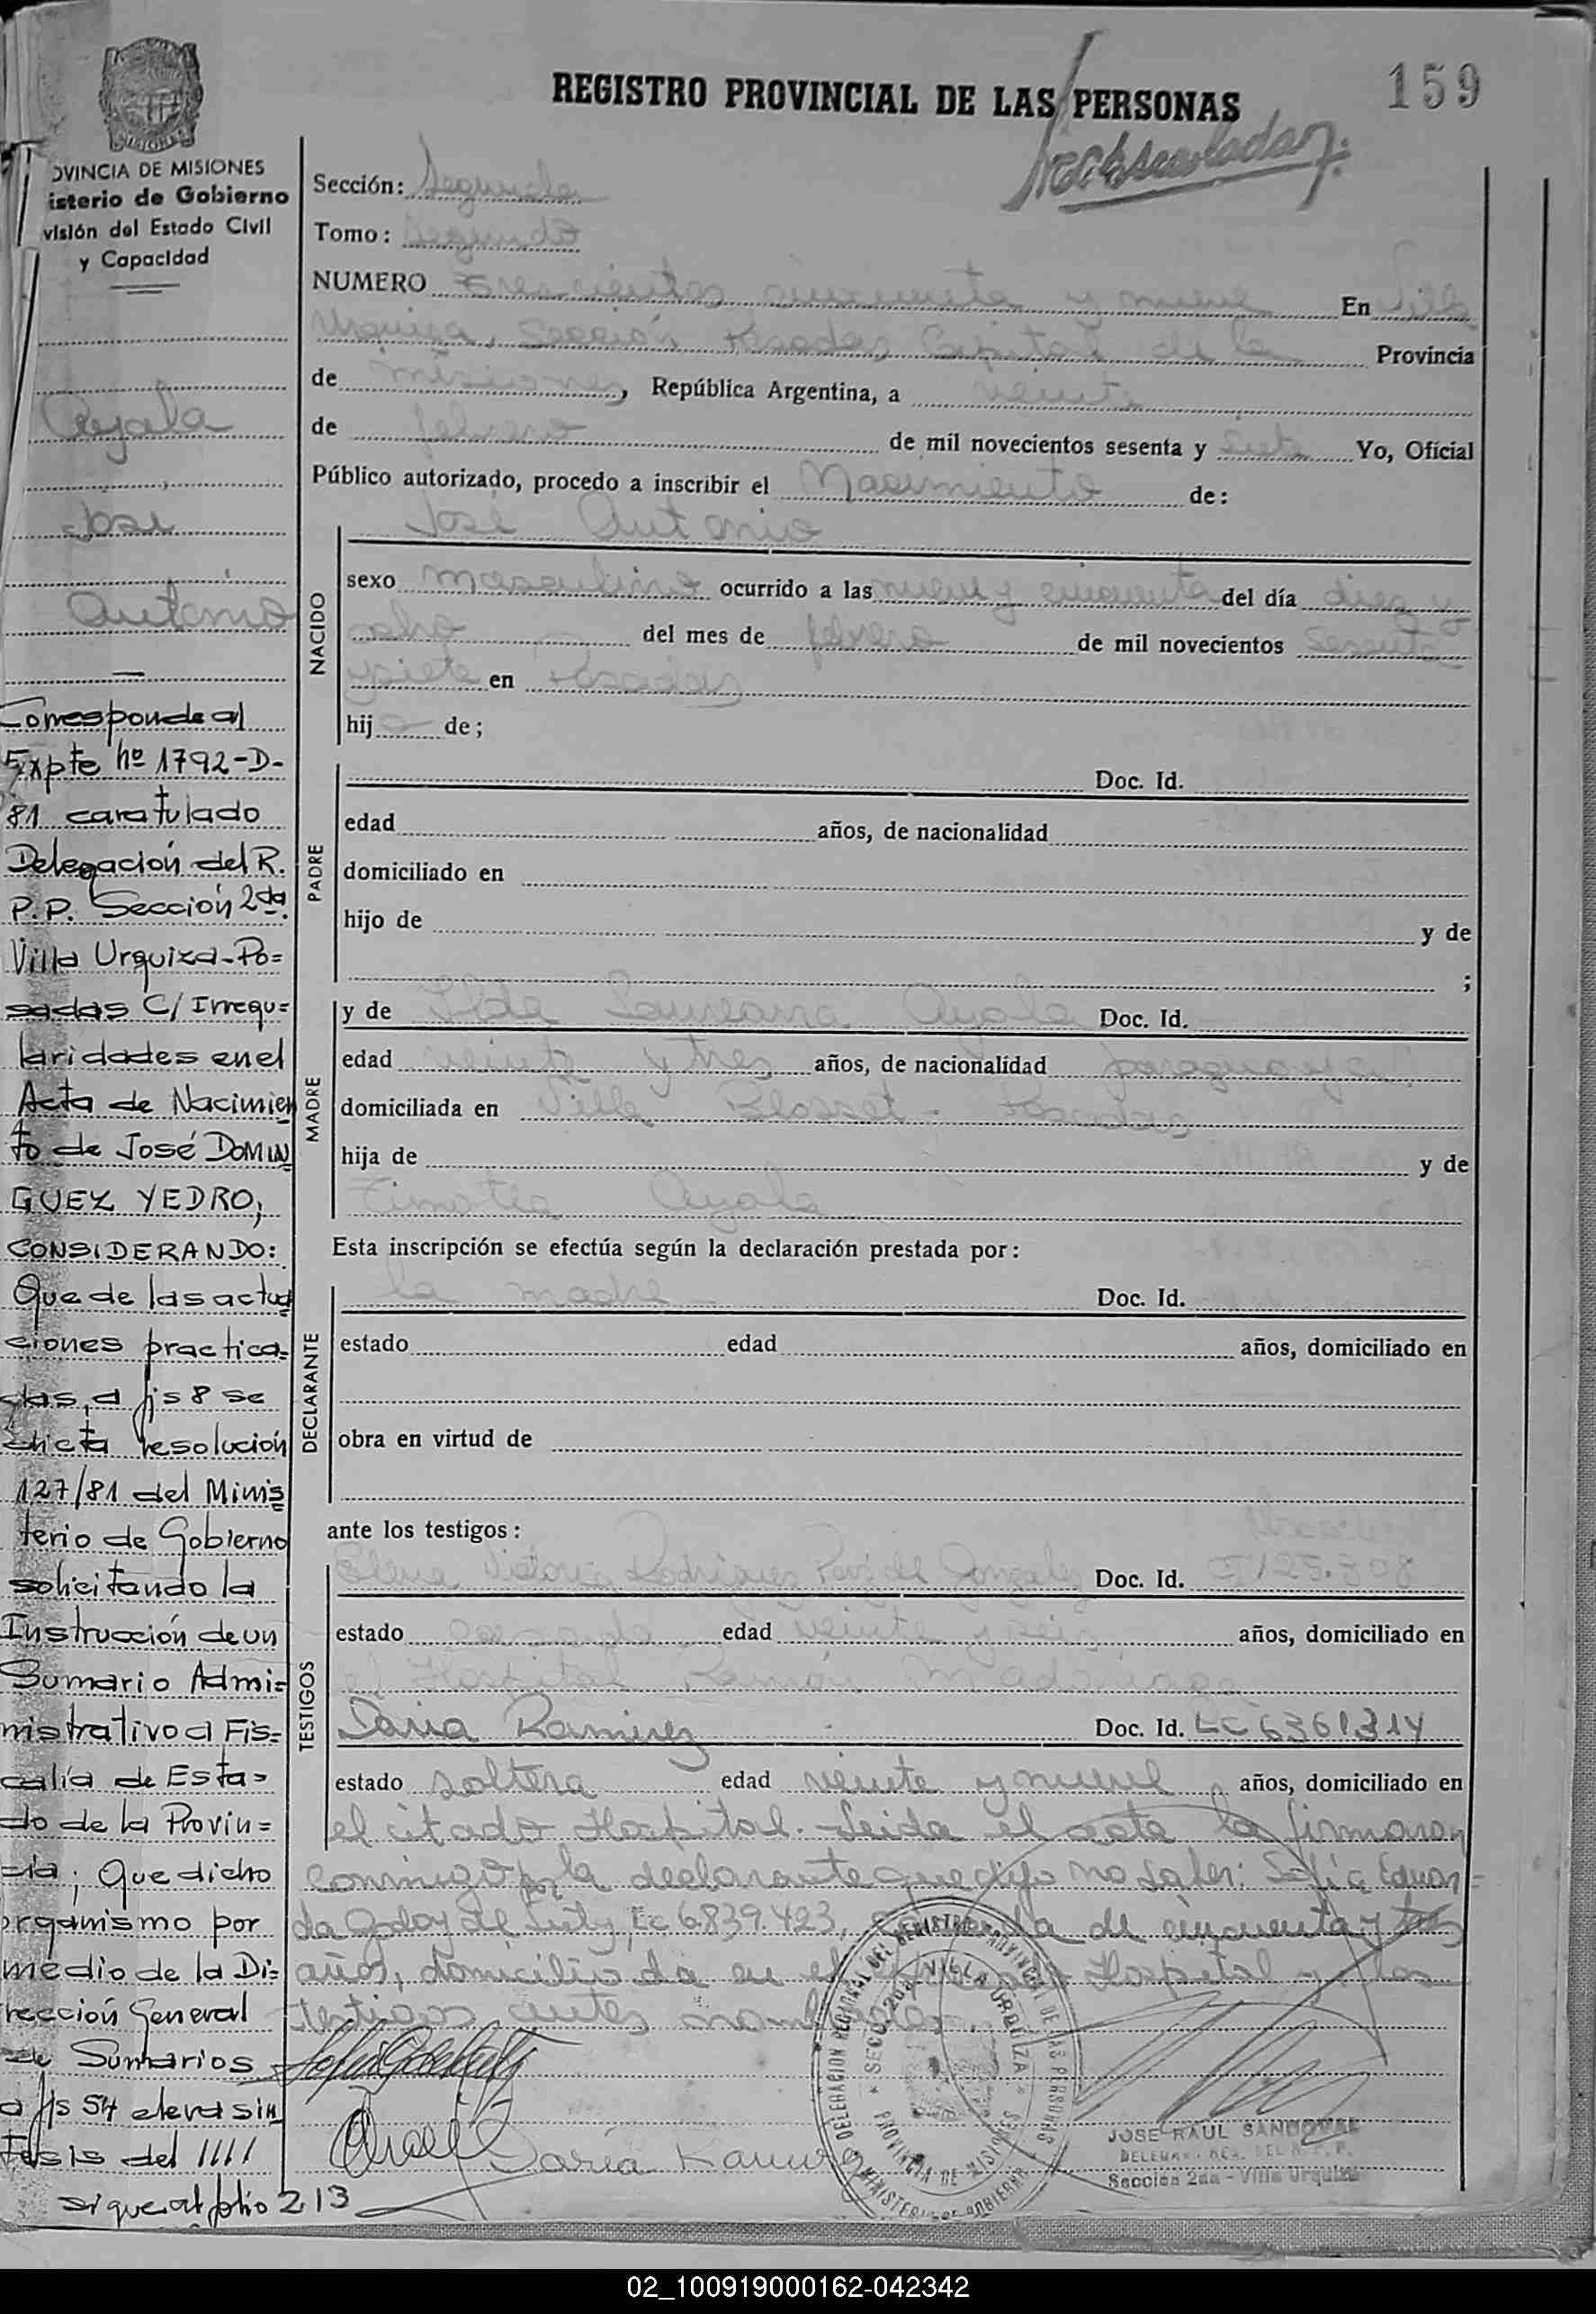 159
REGISTRO PROVINCIAL DE LAS PERSONAS
OVINCIA DE MISIONES
isterio de Gobierno
visión del Estado Civil
y Capacidad
Ayala
José
Antonio
Corresponde al
Expte nº 1792-D-
81 caratulado
Delegación del R.
P.P. Sección 2da
Villa Urquiza-Po=
sadas C/ Irregu=
laridades en el
Acta de Nacimien
to de José DOMIN
GUEZ YEDRO;
CONSIDERANDO:
Que de las actua
ciones practica=
das, a fjs 8 se
dicta resolución
127/81 del Minis
terio de Gobierno
solicitando la
Instrucción de un
Sumario Admi=
nistrativo a Fis=
calía de Esta=
do de la Provin=
cia; Que dicho
organismo por
medio de la Di=
rección General
de Sumarios
a fjs 54 eleva sin
tesis del ////
sigue al folio 213
Sección: Segunda
Tomo: Segundo
NUMERO Trescientos cincuenta y nueve En Villa
Urquiza, Sección Posadas Capital de la Provincia
de Misiones, República Argentina, a veinte
de febrero de mil novecientos sesenta y siete Yo, Oficial
Público autorizado, procedo a inscribir el Nacimiento de:
José Antonio
NACIDO
sexo masculino ocurrido a las nueve y cincuenta del día diez y
ocho del mes de febrero de mil novecientos sesenta
y siete en Posadas
hijo de;
PADRE
Doc. Id.
edad años, de nacionalidad
domiciliado en
hijo de y de
;
MADRE
y de Ilda Ayala Doc. Id.
edad veinte y tres años, de nacionalidad paraguaya
domiciliada en Villa Blosset - Posadas
hija de y de
Timotea Ayala
Esta inscripción se efectúa según la declaración prestada por:
DECLARANTE
la madre Doc. Id.
estado edad años, domiciliado en
obra en virtud de
ante los testigos:
TESTIGOS
Elena Victoria Rodriguez de Gonzalez Doc. Id.
estado casada edad veinte y seis años, domiciliado en
el Hospital Ramón Madariaga
Daria Ramirez Doc. Id. LC 6361314
estado soltera edad veinte y nueve años, domiciliado en
el citado Hospital. Leida el acta la firmaron
conmigo por la declarante que dijo no saber: Sofía Eduar=
da Godoy de Lc 6.839.423, de cincuenta y tres
años, domiciliada en el Hospital y los
testigos antes nombrados.
Daria Ramirez
DELEGACION REGIONAL DEL REGISTRO PROVINCIAL DE LAS PERSONAS
SECC. 2da. VILLA URQUIZA
PROVINCIA DE MISIONES
MINISTERIO DE GOBIERNO
JOSE RAUL SANDOVAL
Sección 2da - Villa Urquiza
02_100919000162-042342